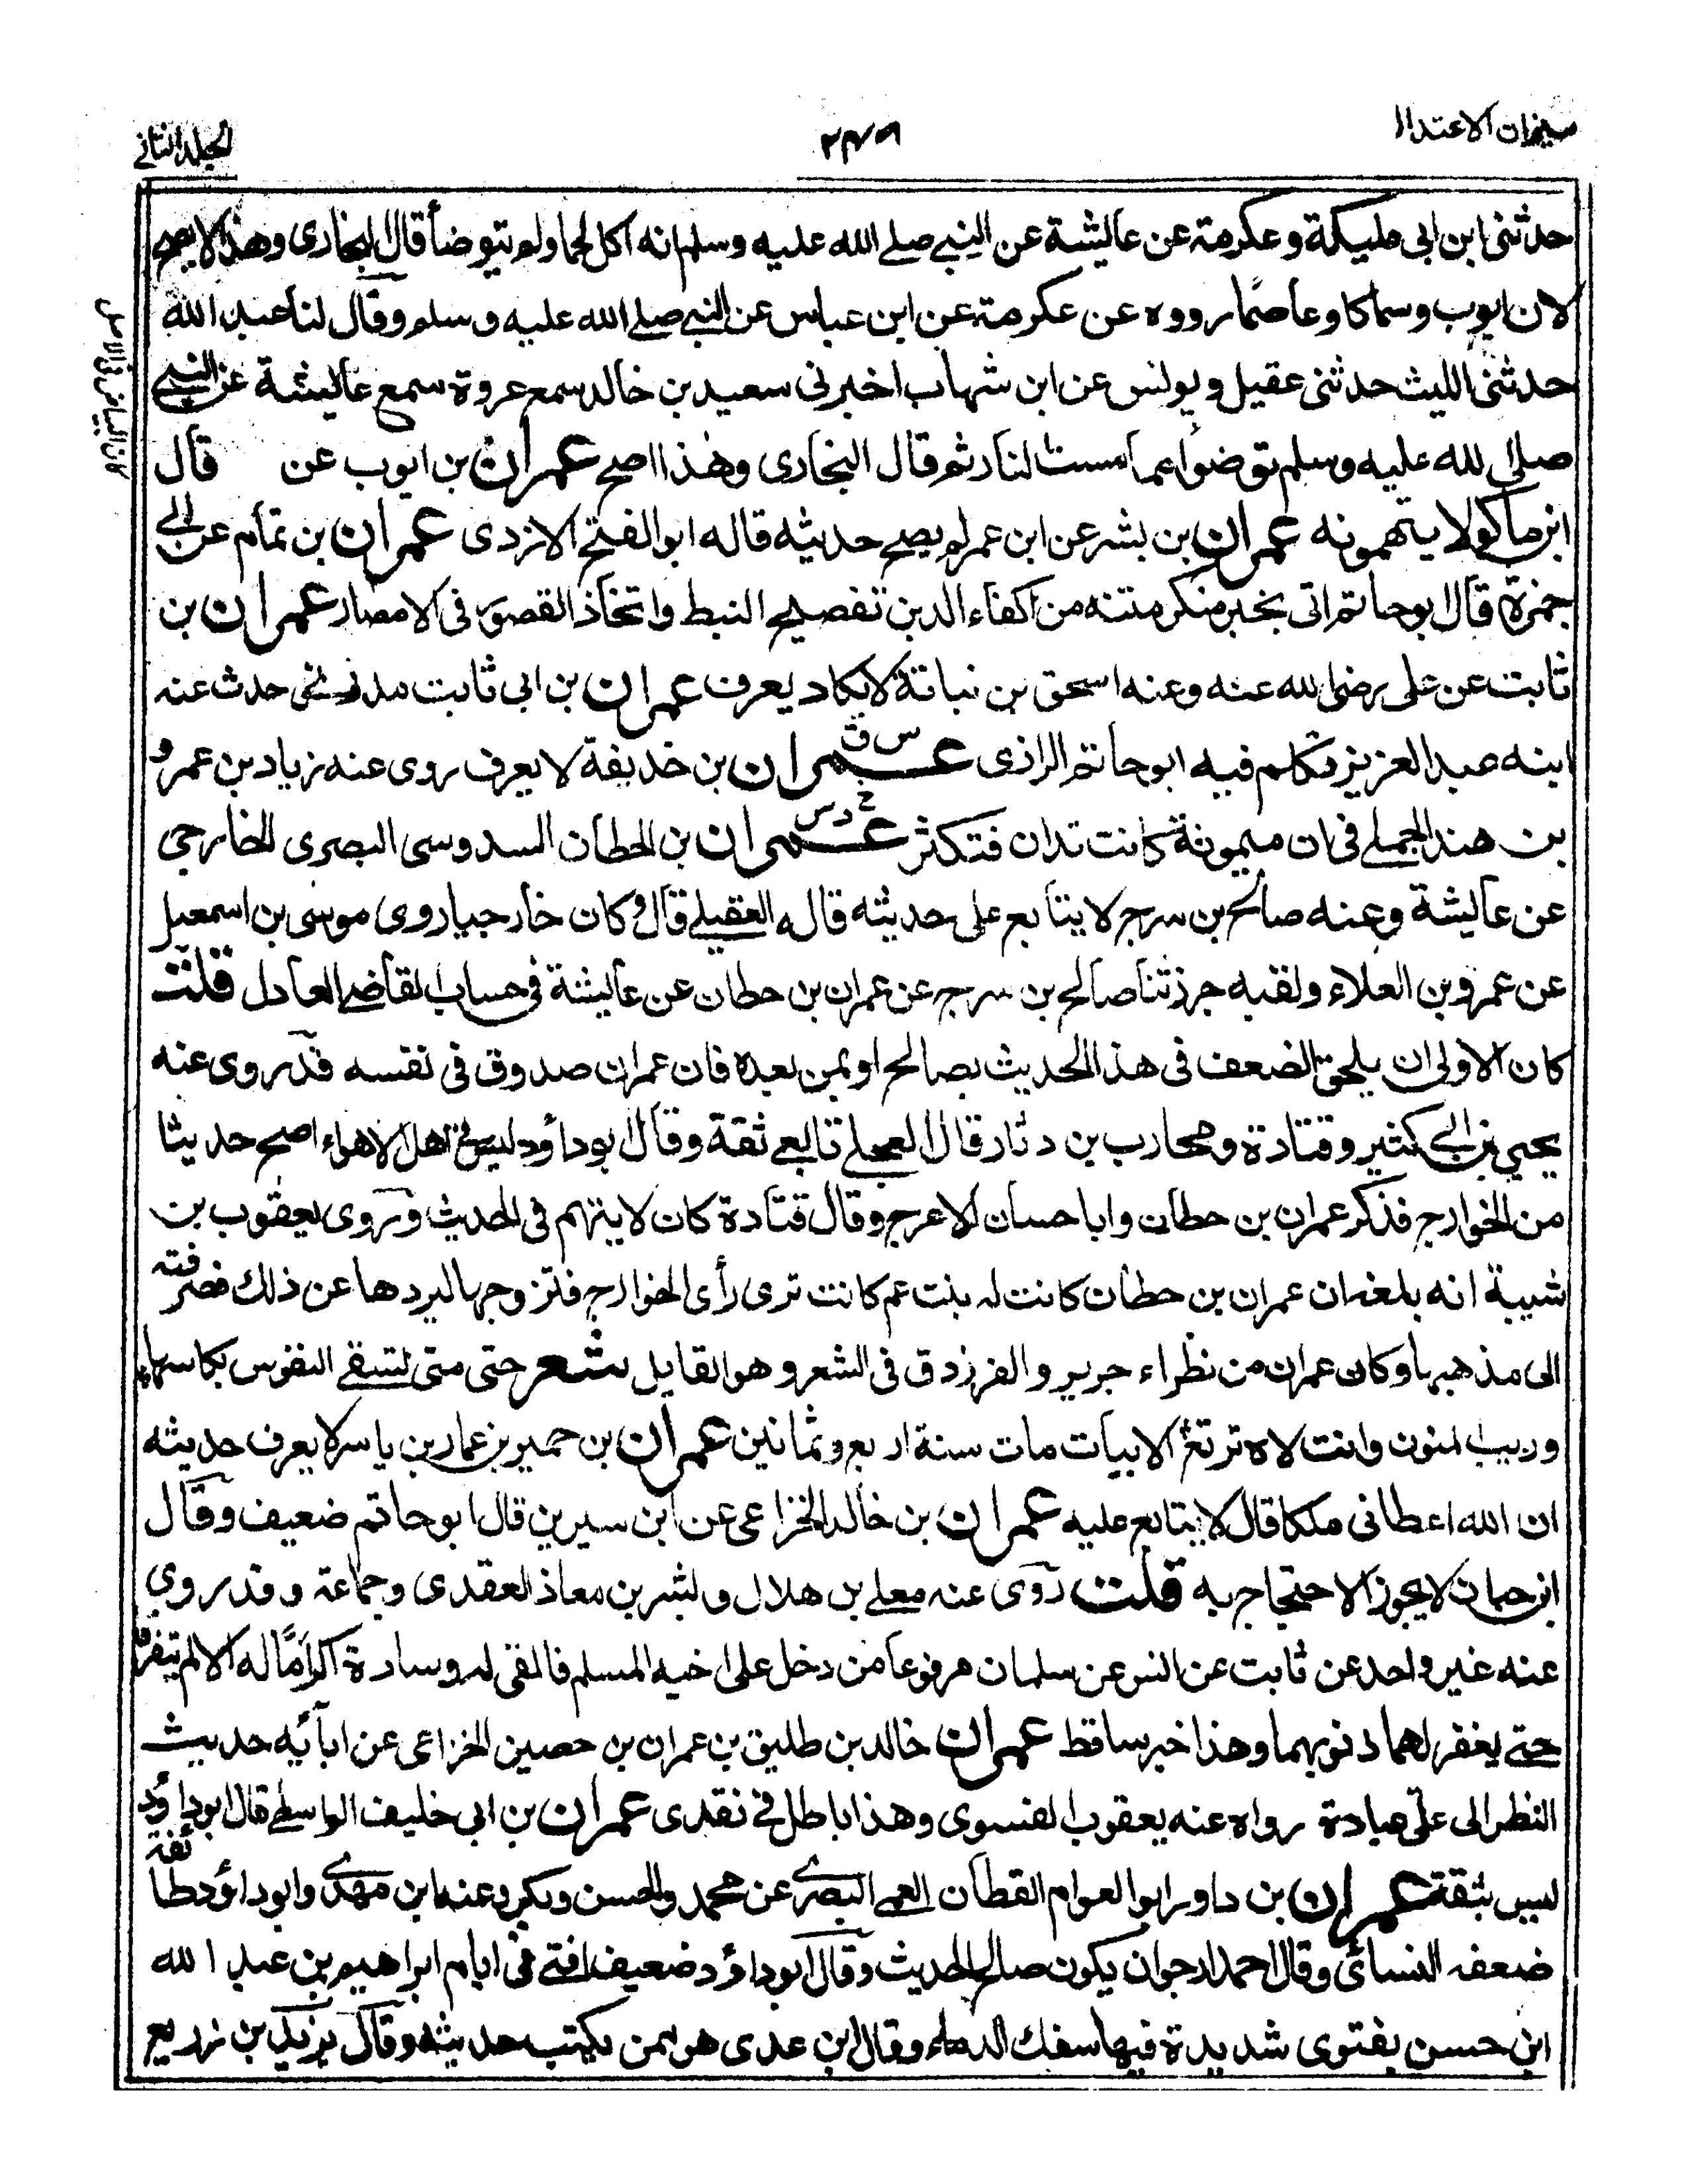 ميزان الاعتدال
٢٧٦
الجلد الثاني
حدثنى ابن ابى مليكة وعكرمة عن عايشة عن النبي صلے الله عليه وسلم انه اكل لحما ولم يتوضأ قال البخارى وهذا لا يصح
لان ايوب وسماكا وعاصمًا رووه عن عكرمة عن ابن عباس عن النبي صلے الله عليه وسلم وقال لنا عبد الله
حدثنى الليث حدثنى عقيل ويونس عن ابن شهاب اخبرنى سعيد بن خالد سمع عروة سمع عايشة عن النبي
صلى الله عليه وسلم توضوا مما مست النار ثم قال البخارى وهذا اصح عمران بن ايوب عن قال
ابن ماكولا يتهمونه عمران بن بشر عن ابن عمر لم يصح حديثه قاله ابو الفتح الازدى عمران بن تمام عن ابي
جمرة قال ابو حاتم اتى بخبر منكر متنه من اكفاء الدين تفصيح النبط واتخاذ القصور فى الامصار عمران بن
ثابت عن على رضى الله عنه وعنه اسحق بن نباتة لا يكاد يعرف عمران بن ابى ثابت مدنى حدث عنه
ابنه عبد العزيز تكلم فيه ابو حاتم الرازى س ق عمران بن حذيفة لا يعرف روى عنه زياد بن عمرو
بن هند الجملے فى ان ميمونة كانت تدان فتكثر خ د س عمران بن الحطان السدوسى البصرى الخارجى
عن عايشة وعنه صالح بن سرج لا يتابع على حديثه قاله العقيلے قال وكان خارجيا روى موسى بن اسمعيل
عن عمرو بن العلاء ولقبه جرز ثنا صالح بن سرج عن عمران بن حطان عن عايشة فى حساب القاضے العادل قلت
كان الاولى ان يلحق الضعف فى هذا الحديث بصالح او بمن بعده فان عمران صدوق فى نفسه قد روى عنه
يحيى بن ابي كثير وقتادة ومحارب بن دثار قال العجلے تابعے ثقة وقال ابو داؤد ليس فى اهل الاهواء اصح حديثا
من الخوارج فذكر عمران بن حطان وابا حسان الاعرج وقال قتادة كان لا يتهم فى الحديث وروى يعقوب بن
شيبة انه بلغه ان عمران بن حطان كانت له بنت عم كانت ترى رأى الخوارج فتزوجها ليردها عن ذلك فصرفته
الى مذهبها وكان عمران من نظراء جرير والفرزدق فى الشعر وهو القايل شعر حتى متى تسقے النفوس بكاسها
وريب المنون وانت لاه ترتع الابيات مات سنة اربع وثمانين عمران بن حمير بن عمار بن ياسر لا يعرف حديثه
ان الله اعطانى ملكا قال لا يتابع عليه عمران بن خالد الخزاعى عن ابن سيرين قال ابو حاتم ضعيف وقال
ابن حبان لا يجوز الاحتجاج به قلت روى عنه معلے بن هلال وبشر بن معاذ العقدى وجماعة وقد روى
عنه غير واحد عن ثابت عن انس عن سلمان مرفوعا من دخل على اخيه المسلم فالقى له وسادة اكرامًا له الا لم يتفرقا
حتے يغفر لهما ذنوبهما وهذا خبر ساقط عمران خالد بن طليق بن عمران بن حصين الخزاعى عن ابآئه حديث
النظر الى علّى عبادة رواه عنه يعقوب الفسوى وهذا باطل فے نقدى عمران بن ابى خليف الواسطے قال ابو داؤد
ليس بثقة عمران بن داور ابو العوام القطان العمي البصرے عن محمد والحسن وبكر وعنه ابن مهدى وابو داؤد طا ثقة
ضعفه النسائى وقال احمد ارجو ان يكون صالح الحديث وقال ابو داؤد ضعيف افتے فى ايام ابراهيم بن عبد الله
ابن حسن بفتوى شديدة فيها سفك الدماء وقال ابن عدى هو ممن يكتب حديثه وقال يزيد بن زريع
كان البياض فى الاصل